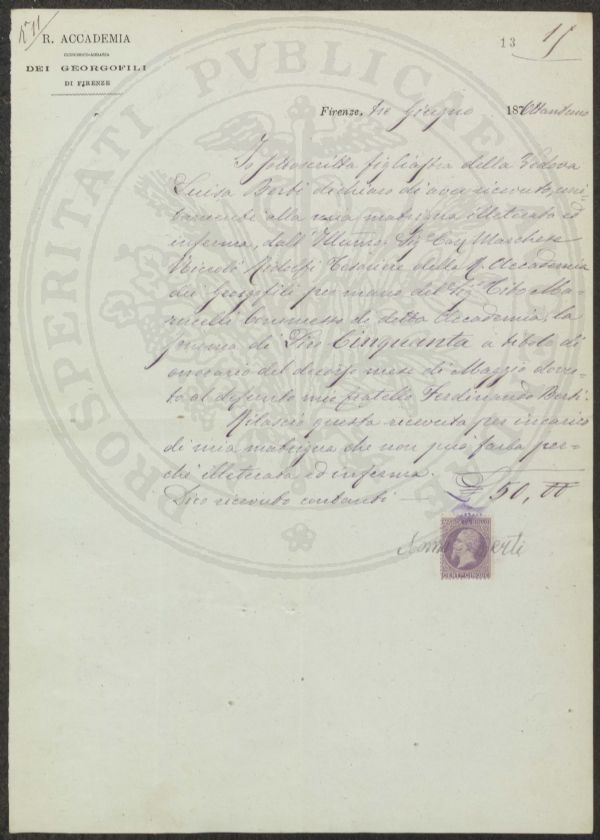 N° 11
R. ACCADEMIA
ECONOMICO-AGRARIA
DEI GEORGOFILI
DI FIRENZE
13 15
Firenze, tre Giugno 187
Io sottoscritta figliastra della Vedova
Luisa Berti dichiaro di aver ricevuto, uni-
tamente alla mia matrigna illetterata ed
inferma, dall' Illmo. Sig. Cav. Marchese
Niccolò Ridolfi Tesoriere della R. Accademia
dei Georgofili per mano del Sig. Tito Mar-
Commesso di detta Accademia, la
somma di Lire Cinquanta a titolo di
onorario del decorso mese di Maggio dovu-
to al defunto mio fratello Ferdinando Berti.
Rilascio questa ricevuta per incarico
di mia matrigna che non può farla per-
chè illetterata ed inferma.
Dico ricevuto contanti £ 50, 00
Berti
MARCA DA BOLLO
CENT. CINQUE
PROSPERITATI PUBLICAE